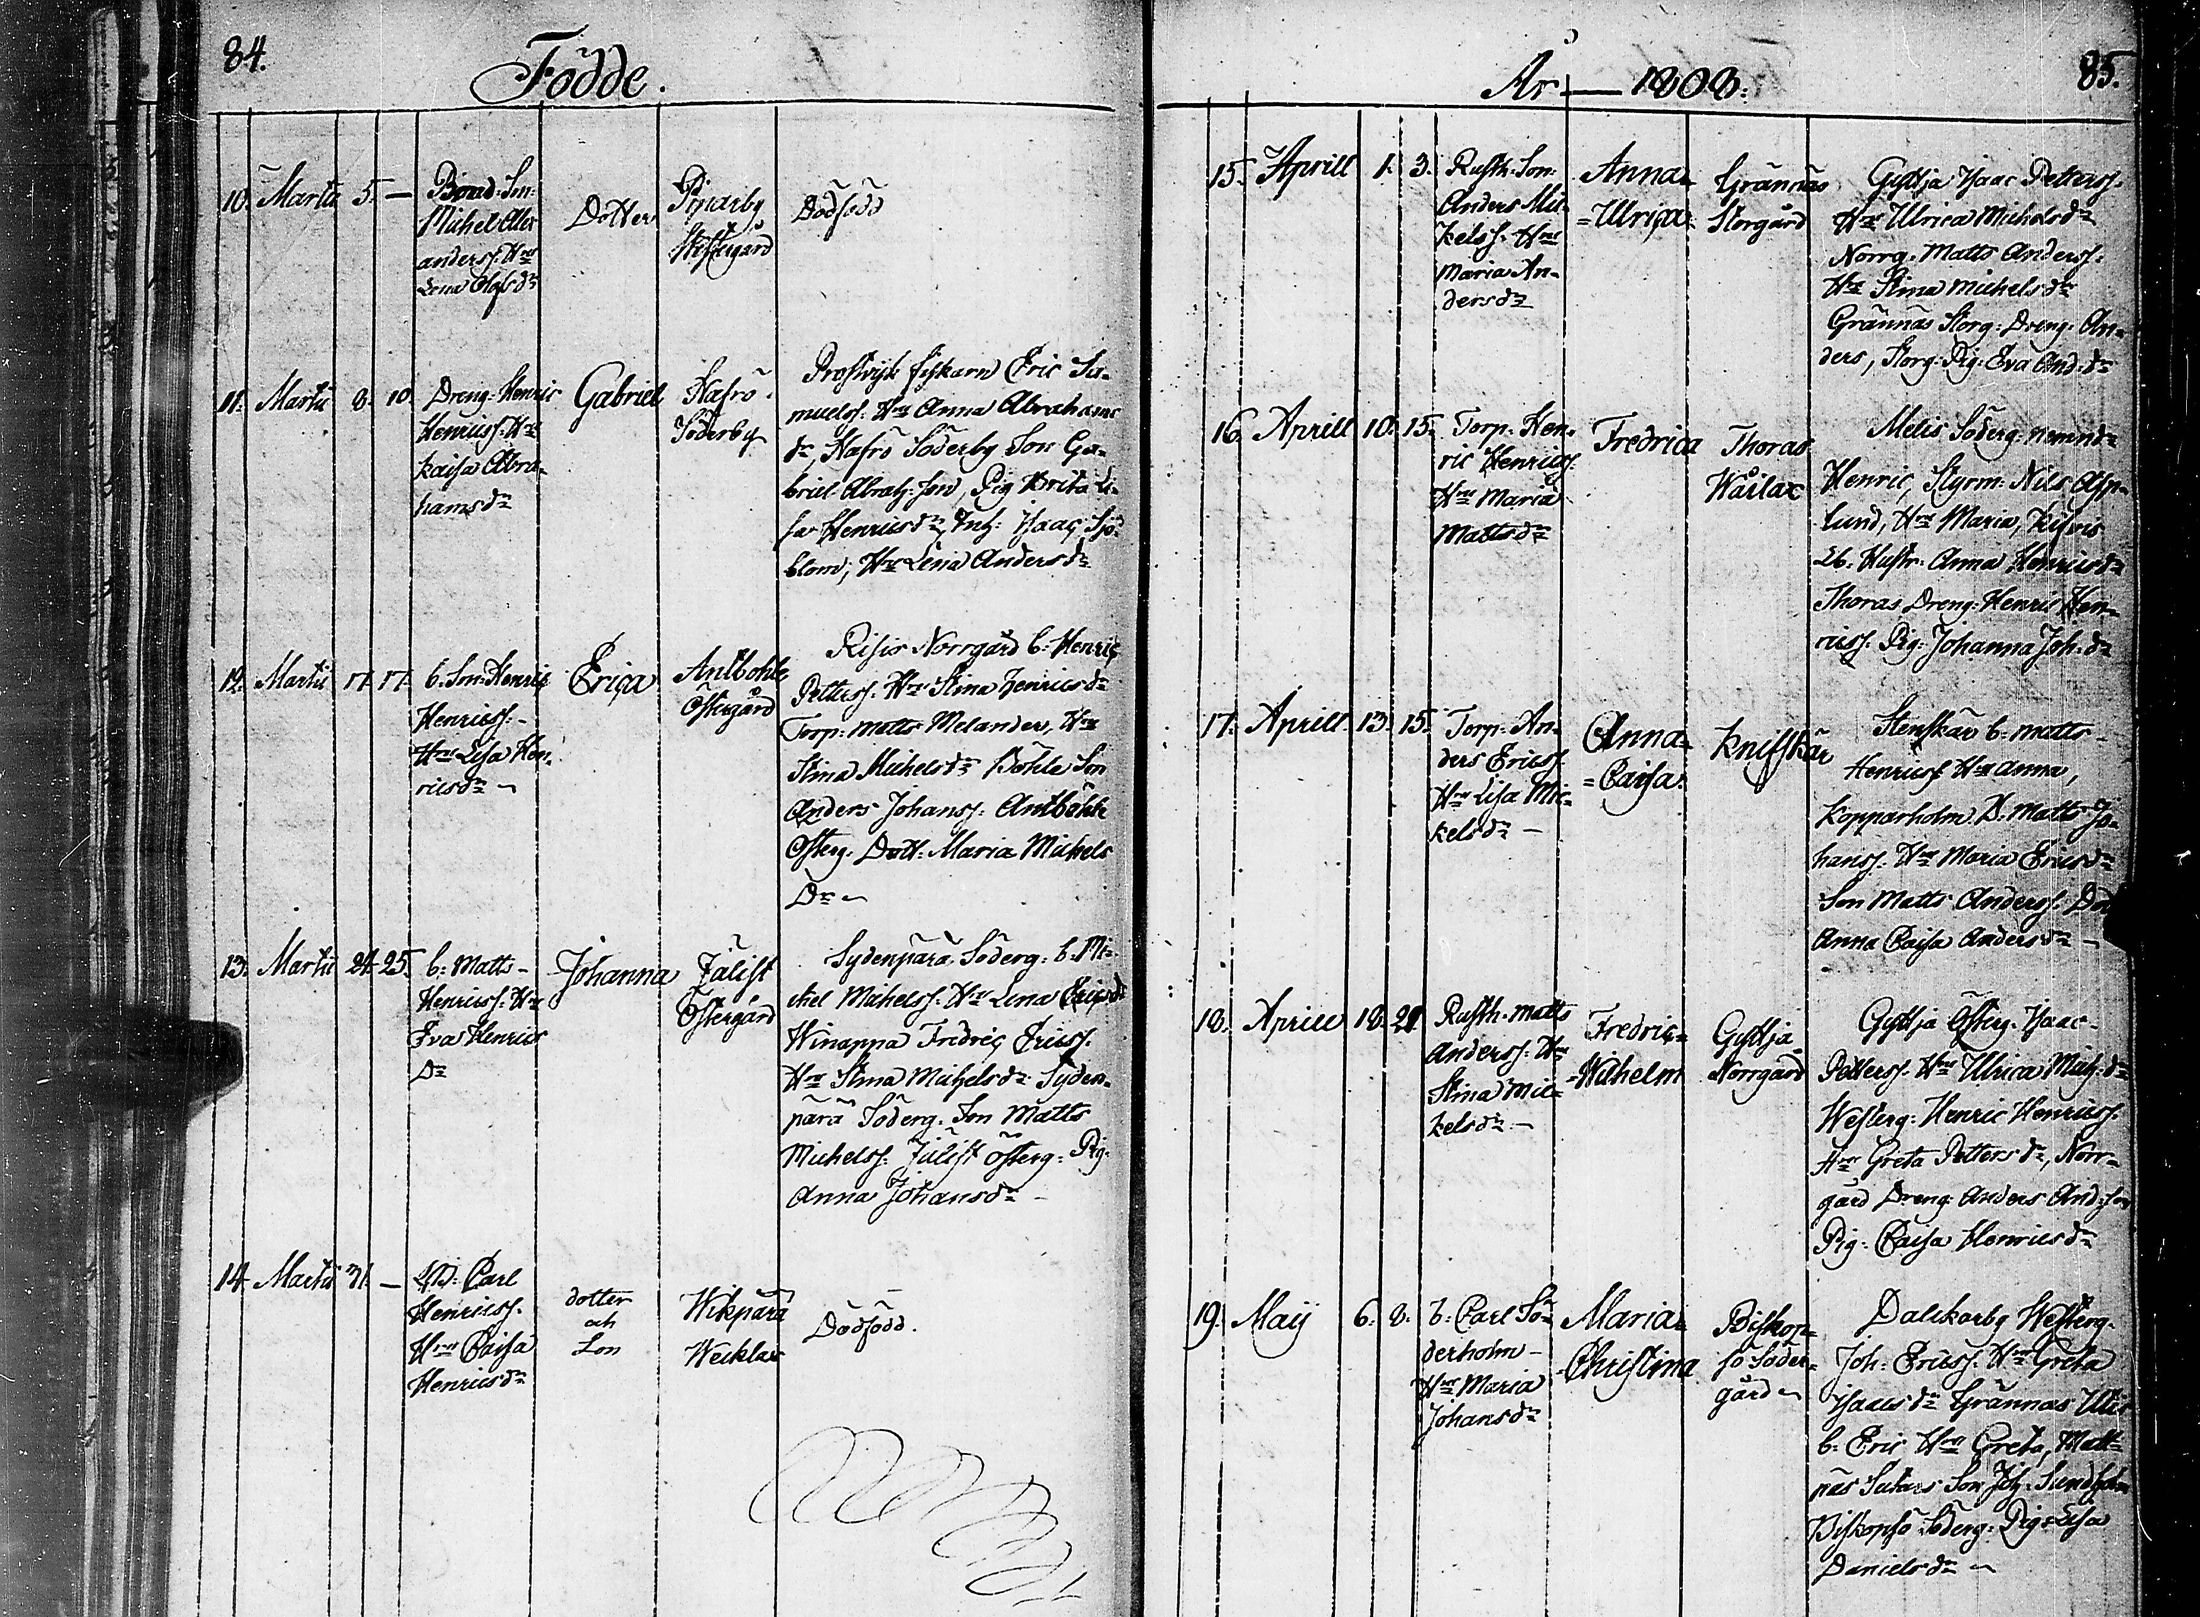 84.
Födde.
10. Martii 5. —
Bond: Son:
Michel Alex
anderss. Hru
Lena Olofs dr
Dotter
Westergård
Dödfödd
11. Martii 8. 10.
Dreng: Henric
Henricss. Hru
Kaisa Abra-
hams dr
Gabriel
Hafrö
Söderby
Prostvijk fiskarn Eric Sa-
muelss: Hru Anna Abrahams
dr, Hafrö Söderby Son Ga-
briel Abrah: Son, Pig. Brita Li-
sa Henrics dr, Inh: Isaac Sjö-
blom, Hru Lena Anders dr
12. Martii 17. 17.
b. Son: Henric
Henricss: -
Hru Lisa Hen-
rics dr -
Erica
Antbohle
Östergård
Risis Norrgård b: Henric
Petterss. Hru Stina Henrics dr
Torp: Matts Melander, Hru
Stina Michels dr Böhle Son
Anders Johanss: Antböhle
Österg. Dott: Maria Michels
Dr -
13. Martii 24. 25.
b: Matts -
Henricss. Hru
Eva Henrics
Dr
Johanna
Jälist
Östergård
Sydenpärä Söderg: b. Mi-
chel Michelss. Hru Lena Erics dr
Winappa Fredric Ericss.
Hru Stina Michels dr Syden-
pärä Söderg. Son Matts
Michelss. Jälist österg: Pig.
Anna Johans dr -
14. Martii 31. —
Carl
Henricss.
Hru Caisa
Henrics dr
dotter
och
Son
Wikpärä
Wecklax
Dödfödd.
År — 1808.
85.
15. Aprill 1. 3.
Rusth. Son:
Anders Mic-
kelss. Hru
Maria An-
ders dr
Anna=
=Ulrica
Grännäs
Storgård
Gyttja Isaac Petterss.
Hru Ulrica Michels dr
Norrg. Matts Anderss.
Hru Stina Michels dr
Grännäs Storg: Dreng: An-
ders, Storg: Pig: Eva And. dr
16. Aprill 10. 15.
Torp. Hen-
ric Henricss.
Hru Maria
Matts dr
Fredrica
Thoras
Wårlax
Melis Söderg. nemnd:
Henric, Styrm: Nils Asp-
lund, Hru Maria,
Hustr. Anna Henrics dr
Thoras Dreng: Henric Hen-
ricss. Pig: Johanna Joh. dr
17. Aprill 13. 15.
Torp. An-
ders Ericss.
Hru Lisa Mic-
kels dr -
Anna=
=Caisa
Knifskär
Stenskär b: Matts -
Henricss Hru Anna,
Kopparholm D. Matts Jo-
hanss. Hru Maria Erics dr
Son Matts Anderss.
Anna Caisa Anders dr -
18. Aprill 18. 21
Rusth. Matts
Anderss. Hru
Stina Mic-
kels dr -
Fredric=
=Wilhelm
Gyttja
Norrgård
Gyttja Österg. Isaac
Petterss. Hru Ulrica Mich. dr
Westerg: Henric Henricss.
Hru Greta Petters dr, Norr-
gård Dreng Anders And: Son
Pig: Caisa Henrics dr
19. Maij 6. 8.
b: Carl Sö-
derholm -
Hru Maria
Johans dr
Maria=
Christina
Biskop-
sö Söder-
gård -
Dalskarby Westerg.
Joh: Ericss. Hru Greta
Isaacs dr Grännäs
b: Eric Hru Greta, Matt-
näs Son Joh: Sundholm
Biskopsö Söderg: Pig: Lisa
Daniels dr -